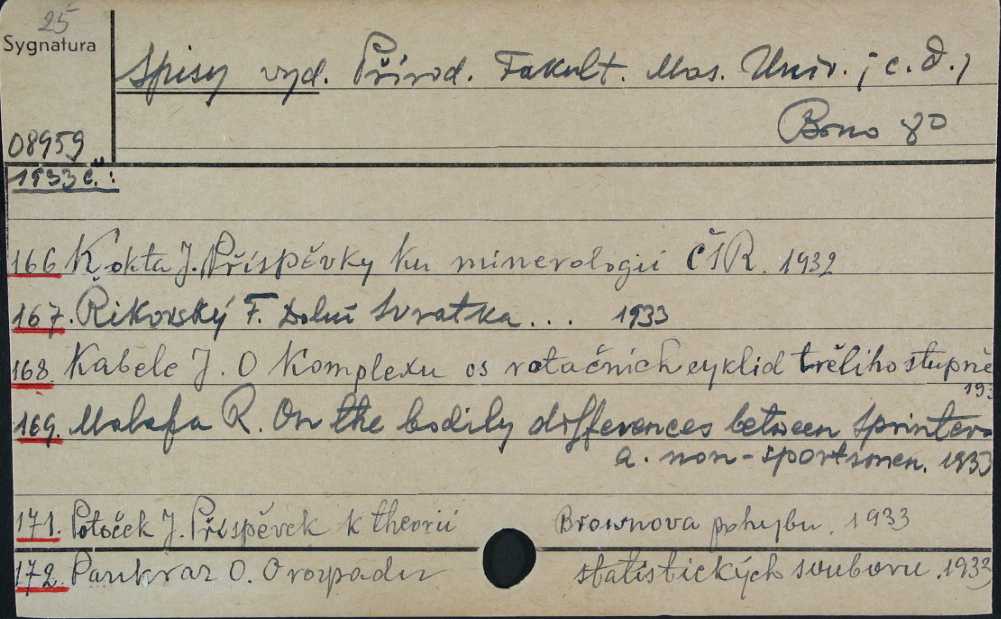 25
Sygnatura
Spisy vyd. Přírod. Fakult. Mas. Univ. ; c. d. ,
Brno 80
08959
1933 č. :
166 Kokta J. Příspěvky ku minerologii ČSR. 1932
167. Řikovský F. Dolní Svratka... 1933
168 Kabele J. O Komplexu os rotačních cyklid třetího stupně
193
169. Malafa R. On the bodily differences between sprinters
a. non-sportsmen. 1933
171. Potoček J. Příspěvek k theorii Brownova pohybu. 1933
172. Pankraz O. O rozpadu statistických souboru. 1933